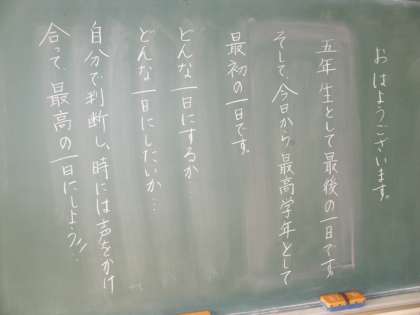 おはようございます。
五年生として最後の一日です。
そして、今日から最高学年として
最初の一日です。
どんな一日にするか…
どんな一日にしたいか…
自分で判断し、時には声をかけ
合って、最高の一日にしよう!!